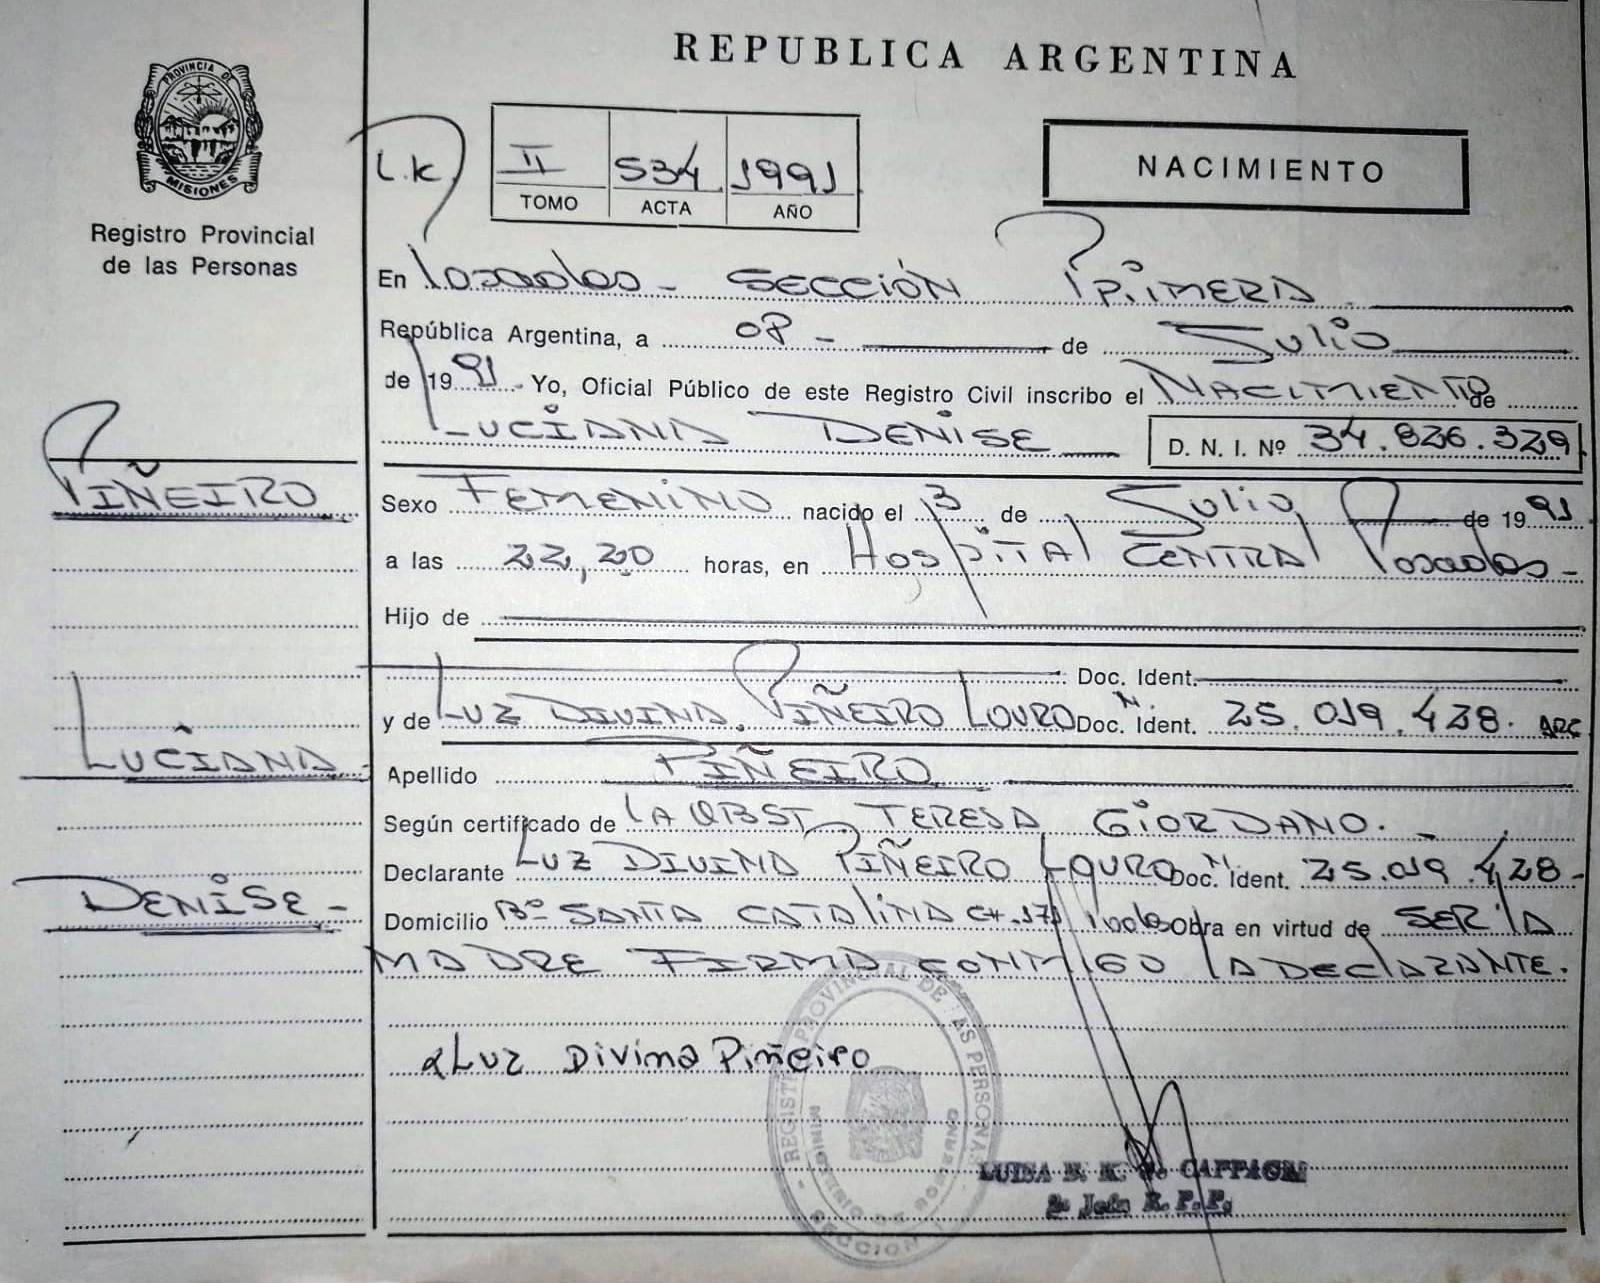 REPUBLICA ARGENTINA
PROVINCIA DE MISIONES
Registro Provincial
de las Personas
L.K
II 534 1991
TOMO ACTA AÑO
NACIMIENTO
En Posadas - SECCIÓN PRIMERA
República Argentina, a 08 - de Julio
de 1991 - Yo, Oficial Público de este Registro Civil inscribo el NACIMIENTO de
LUCIANA DENISE D. N. I. Nº 34.826.329
PIÑEIRO
Sexo FEMENINO nacido el 3 de Julio de 1991
a las 22,20 horas, en HOSPITAL CENTRAL Posadas -
Hijo de
Doc. Ident.
y de LUZ DIVINA PIÑEIRO LOURO Doc. N. Ident. 25.019.428. ARG
LUCIANA
Apellido PIÑEIRO
Según certificado de LA OBST. TERESA GIORDANO. -
Declarante LUZ DIVINA PIÑEIRO LOURO Doc. N. Ident. 25.019.428 -
DENISE -
Domicilio Bº SANTA CATALINA CH. 171 Obra en virtud de SER LA
MADRE FIRMA CONMIGO LA DECLARANTE.
Luz Divina Piñeiro
REGISTRO PROVINCIAL DE LAS PERSONAS
SECCION
LUISA CAPPAGNI
2º Jefe R. P. P.